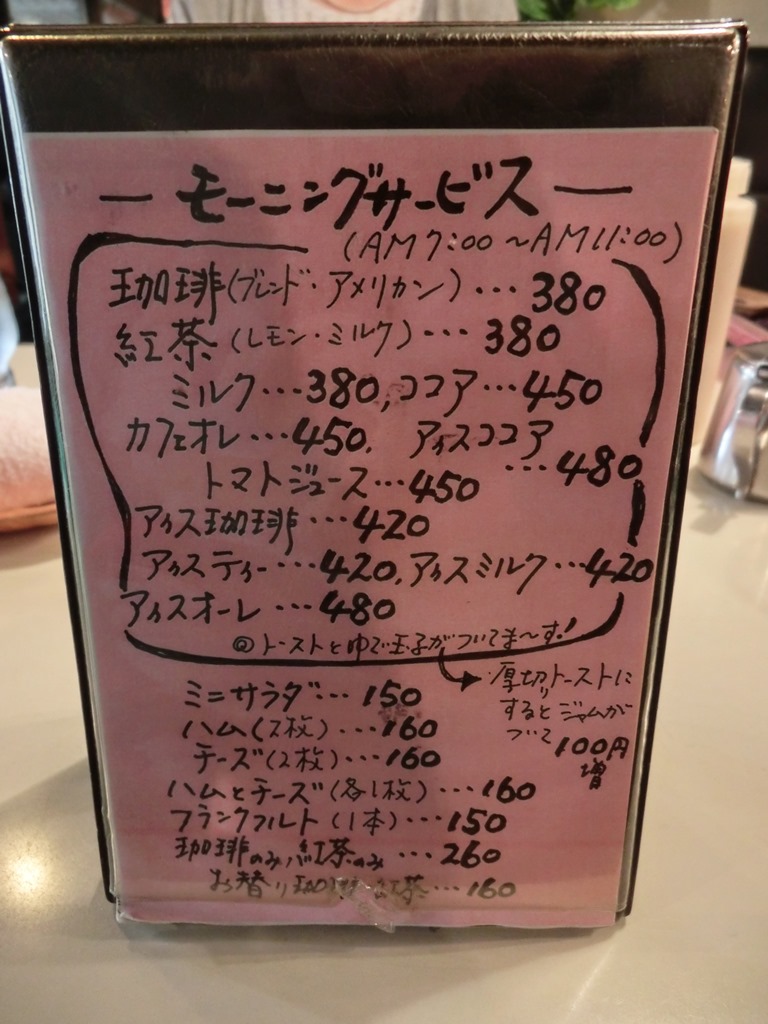 — モーニングサービス —
(AM7:00～AM11:00)
珈琲(ブレンド・アメリカン)…380
紅茶(レモン・ミルク)…380
ミルク…380, ココア…450
カフェオレ…450. アイスココア
…480
トマトジュース…450
アイス珈琲…420
アイスティー…420. アイスミルク…420
アイスオーレ…480
◎トーストとゆで玉子がついてま～す!
厚切トーストに
するとジャムが
ついて
100円
増
ミニサラダ…150
ハム(2枚)…160
チーズ(2枚)…160
ハムとチーズ(各1枚)…160
フランクフルト(1本)…150
珈琲のみ,紅茶のみ…260
お替り珈琲,紅茶…160